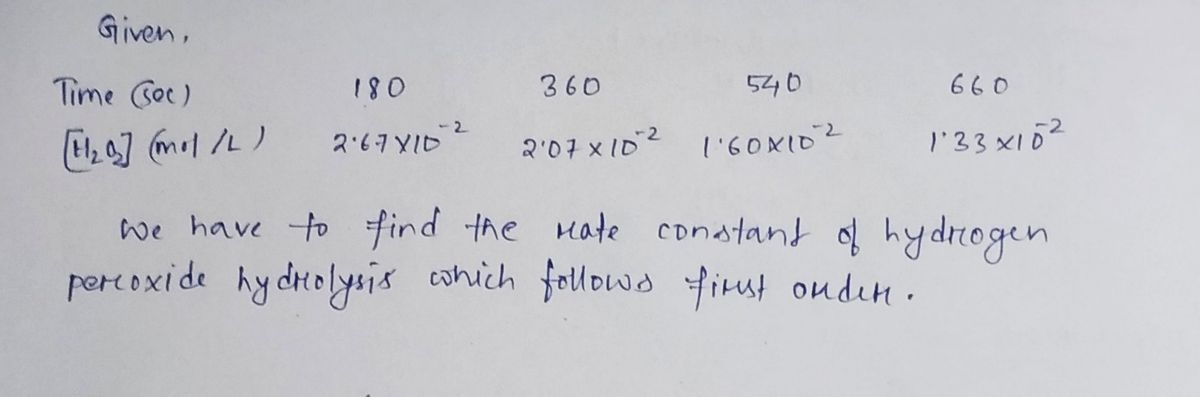 Given,
Time (sec) 180 360 540 660
[H₂O₂] (mol/L) 2.67×10⁻² 2.07×10⁻² 1.60×10⁻² 1.33×10⁻²
We have to find the rate constant of hydrogen
peroxide hydrolysis which follows first order.